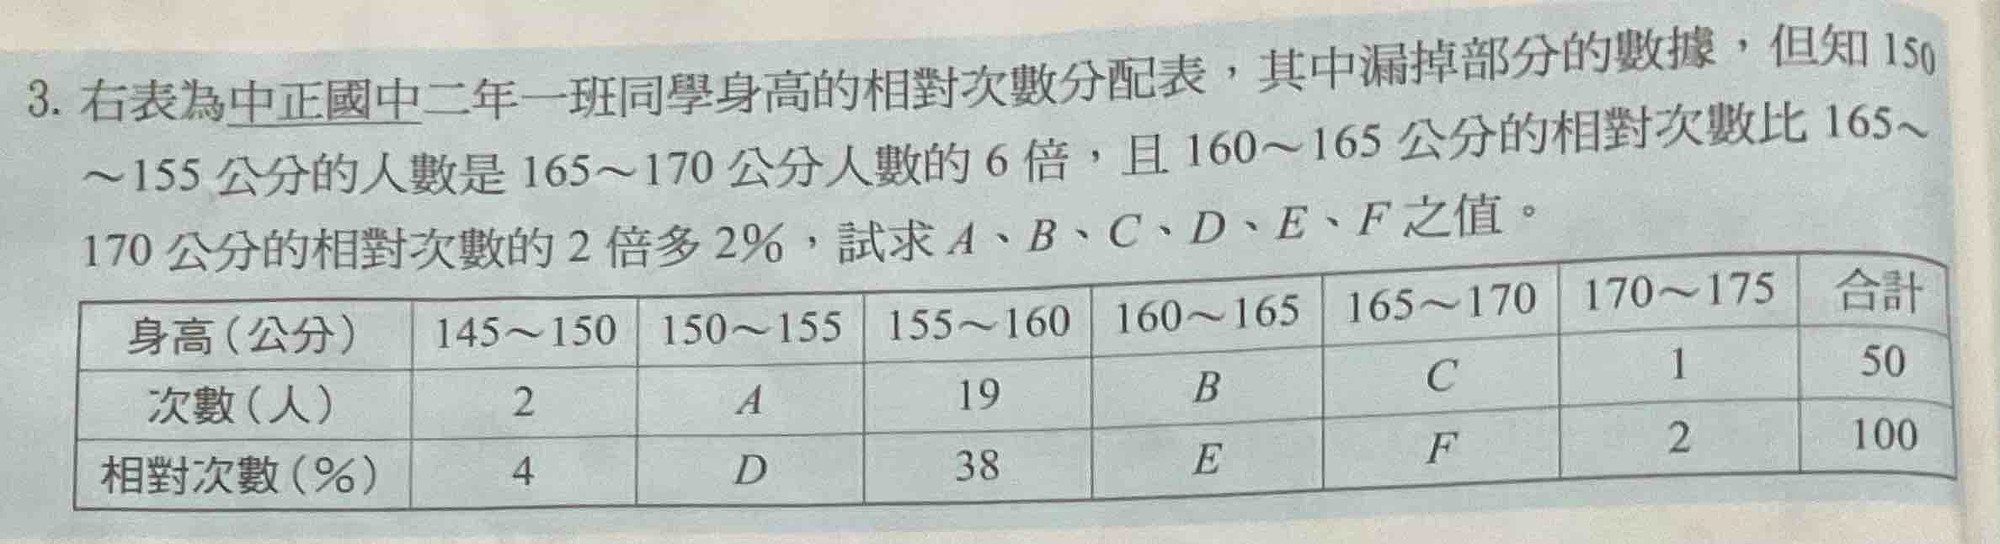 3. 右表為中正國中二年一班同學身高的相對次數分配表，其中漏掉部分的數據，但知 150
～155 公分的人數是 165～170 公分人數的 6 倍，且 160～165 公分的相對次數比 165～
170 公分的相對次數的 2 倍多 2%，試求 A、B、C、D、E、F 之值。
身高(公分) 145～150 150～155 155～160 160～165 165～170 170～175 合計
次數(人) 2 A 19 B C 1 50
相對次數(%) 4 D 38 E F 2 100